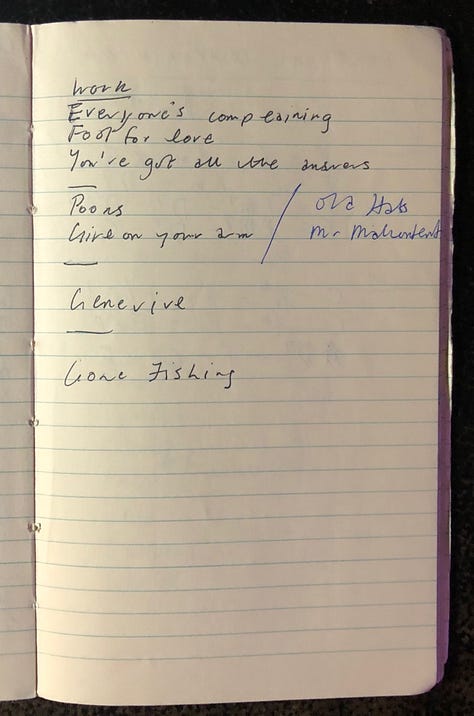 Work
Everyone's complaining
Fool for love
You've got all the answers
Poons
Give on your arm / Old Hats
Mr Malcontent
Genevive
Gone Fishing